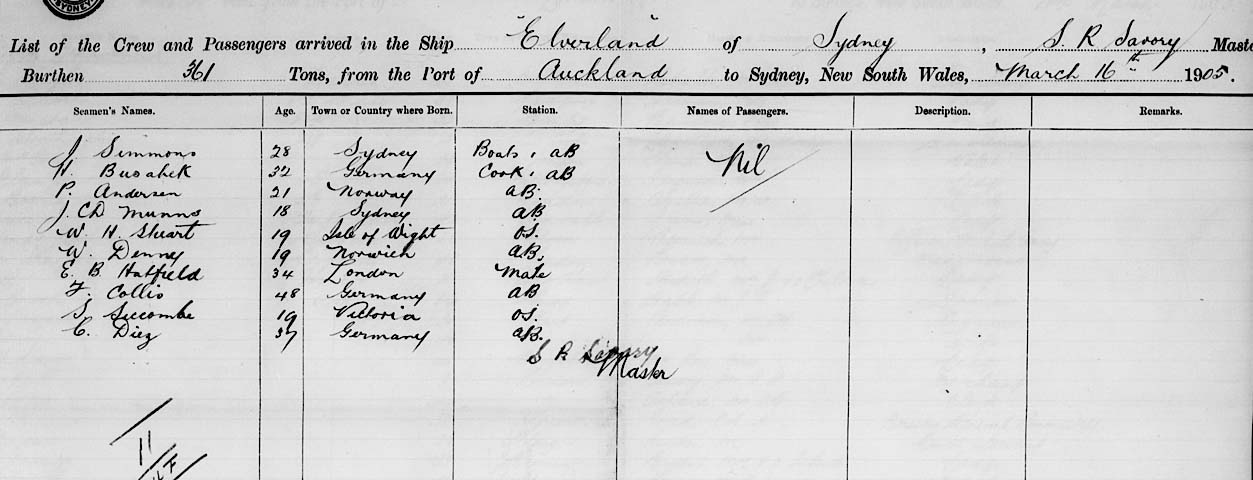 SYDNEY
List of the Crew and Passengers arrived in the Ship "Elverland" of Sydney, S. R Savory Maste
Burthen 361 Tons, from the Port of Auckland to Sydney, New South Wales, March 16th 1905.
Seamen's Names. Age. Town or Country where Born. Station. Names of Passengers. Description. Remarks.
J Simmons 28 Sydney Boats, AB Nil
H. 32 Germany Cook, AB
P. Andersen 21 Norway AB.
J. CD Munns 18 Sydney AB
W. H. Stuart 19 Isle of Wight OS.
W. Denny 19 Norwich AB.
E. B. Hatfield 34 London Mate
F. Collis 48 Germany AB
S. Seccombe 19 Victoria OS.
C. Diez 37 Germany AB.
S R Savory
Master
11